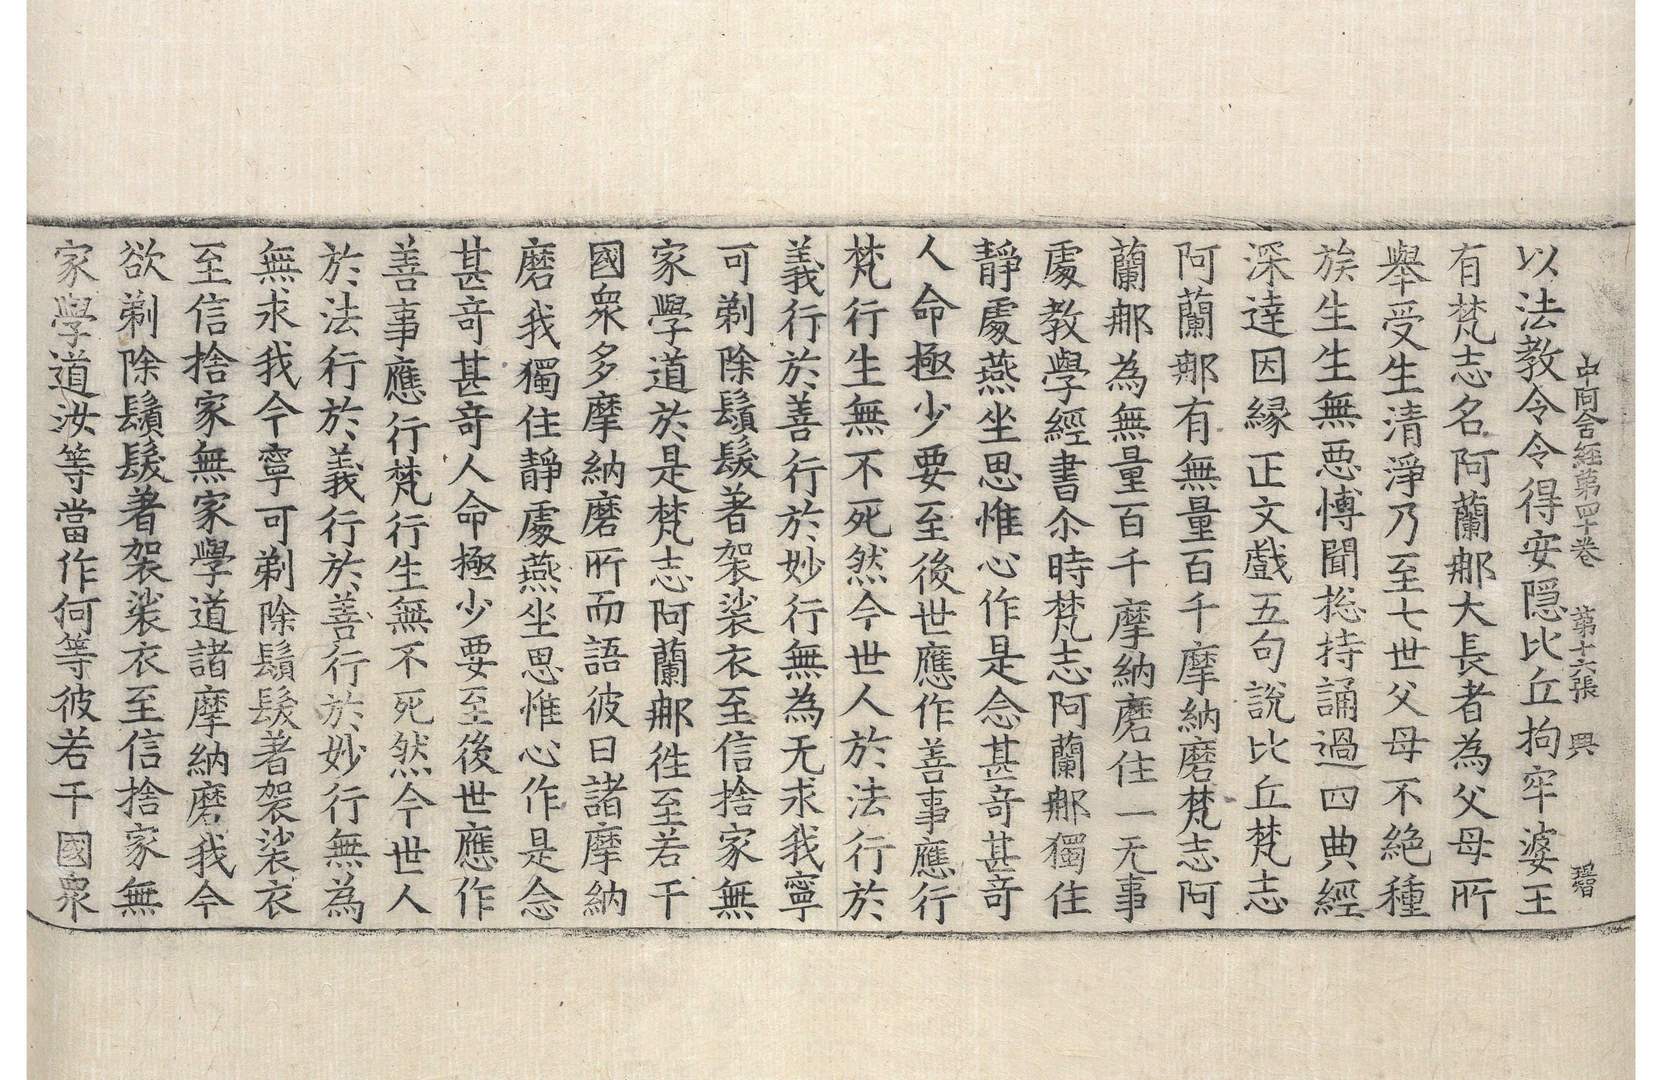 中阿含經第四十卷 第十六張 興 瑨
以法教令令得安隱比丘拘牢婆王
有梵志名阿蘭那大長者為父母所
舉受生清淨乃至七世父母不絶種
族生生無惡博聞揔持誦過四典經
深達因緣正文戲五句說比丘梵志
阿蘭那有無量百千摩納磨梵志阿
蘭那為無量百千摩納磨住一无事
處教學經書尒時梵志阿蘭那獨住
靜處燕坐思惟心作是念甚奇甚奇
人命極少要至後世應作善事應行
梵行生無不死然今世人於法行於
義行於善行於妙行無為无求我寧
可剃除鬚髮著袈裟衣至信捨家無
家學道於是梵志阿蘭那往至若干
國衆多摩納磨所而語彼曰諸摩納
磨我獨住靜處燕坐思惟心作是念
甚奇甚奇人命極少要至後世應作
善事應行梵行生無不死然今世人
於法行於義行於善行於妙行無為
無求我今寧可剃除鬚髮著袈裟衣
至信捨家無家學道諸摩納磨我今
欲剃除鬚髮著袈裟衣至信捨家無
家學道汝等當作何等彼若干國衆